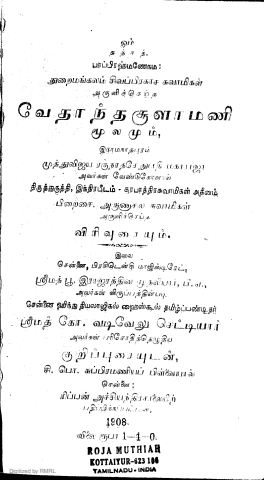 ஓம்
தத்சத்.
பரப்பிரஹ்மணேநம:
துறைமங்கலம் சிவப்பிரகாச சுவாமிகள்
அருளிச்செய்த
வேதாந்தசூளாமணி
மூலமும்,
இராமநாதபுரம்
முத்துவிஜய ரகுநாதசேதுபதி மகாராஜா
அவர்கள் வேண்டுகோளால்
திருத்துருத்தி, இந்திரபீடம் - கரபாத்திரசுவாமிகள் ஆதீனம்
பிறைசை, அருணாசல சுவாமிகள்
அருளிச்செய்த
விரிவுரையும்.
இவை
சென்னை, பிரசிடென்சி மாஜிஸ்டிரேட்,
ஸ்ரீமத் பூ. இராஜரத்தின முதலியார், பி.ஏ.,
அவர்கள் விருப்பத்தின்படி
சென்னை யூநிடெட் பிரி சர்ச் ஹைஸ்கூல் தமிழ்ப்பண்டிதர்
ஸ்ரீமத் கோ. வடிவேலு செட்டியார்
அவர்கள் பரிசோதித்தெழுதிய
குறிப்புரையுடன்,
சி. பொ. சுப்பிரமணியப் பிள்ளையால்
சென்னை:
ரிப்பன் அச்சியந்திரசாலையிற்
பதிப்பிக்கப்பட்டன.
1908.
விலை ரூபா 1-4-0.
ROJA MUTHIAH
KOTTAIYUR-623 106
TAMILNADU - INDIA
Digitized by RMRL